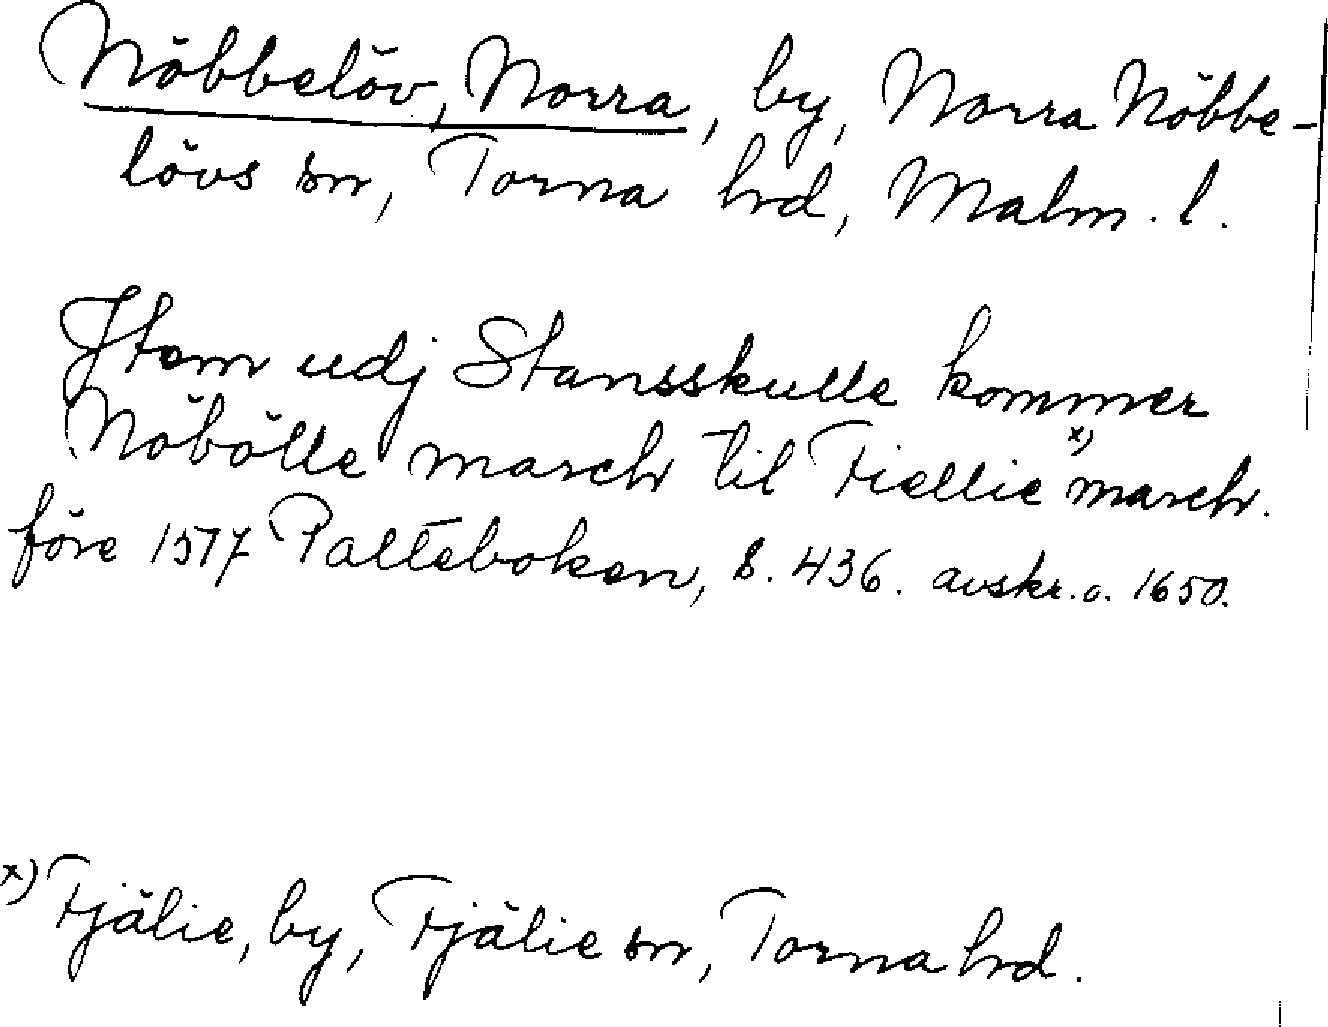 Nöbbelöv, Norra, by, Norra Nöbbe-
lövs sn, Torna hrd, Malm. l.
Jtem udj Stansskulle kommer
Nöbölle march til Fiellie x) march.
före 1577 Palteboken, s. 436. avskr. o. 1650.
x) Fjälie, by, Fjälie sn, Torna hrd.